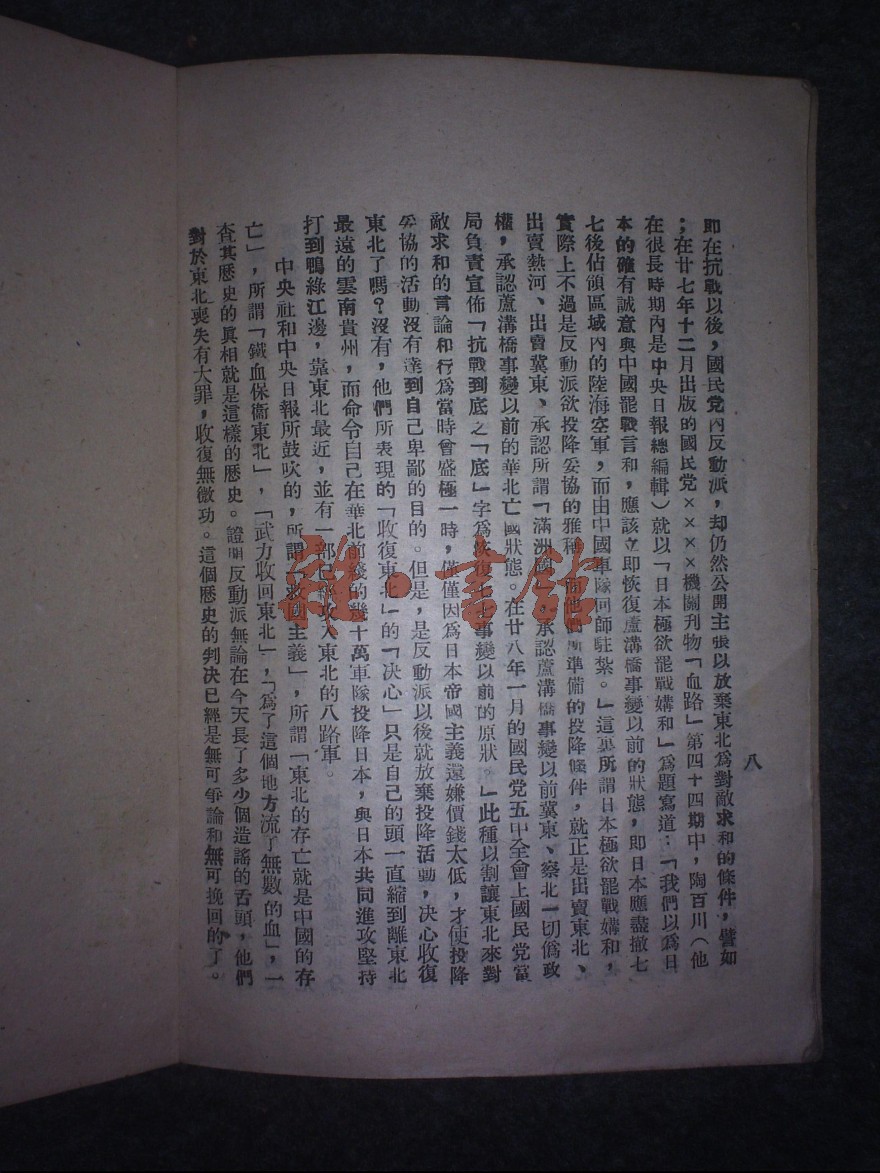 八
即在抗戰以後，國民党內反動派，却仍然公開主張以放棄東北為對敵求和的條件，譬如
；在廿七年十二月出版的國民党××××機關刊物「血路」第四十四期中，陶百川（他
在很長時期內是中央日報總編輯）就以「日本極欲罷戰媾和」為題寫道：「我們以為日
本的確有誠意與中國罷戰言和，應該立即恢復蘆溝橋事變以前的狀態，即日本應盡撤七
七後佔領區域內的陸海空軍，而由中國軍隊何師駐紮。」這裏所謂日本極欲罷戰媾和，
實際上不過是反動派欲投降妥協的雅稱，而他們所準備的投降條件，就正是出賣東北、
出賣熱河、出賣冀東、承認所謂「滿洲國」、承認蘆溝橋事變以前冀東、察北一切偽政
權，承認蘆溝橋事變以前的華北亡國狀態。在廿八年一月的國民党五中全會上國民党當
局負責宣佈「抗戰到底之「底」字為恢復七七事變以前的原狀。」此種以割讓東北來對
敵求和的言論和行為當時曾盛極一時，僅僅因為日本帝國主義還嫌價錢太低，才使投降
妥協的活動沒有達到自己卑鄙的目的。但是，是反動派以後就放棄投降活動，决心收復
東北了嗎？沒有，他們所表現的「收復東北」的「决心」只是自己的頭一直縮到離東北
最遠的雲南貴州，而命令自己在華北前綫的幾十萬軍隊投降日本，與日本共同進攻堅持
打到鴨綠江邊，靠東北最近，並有一部已經攻入東北的八路軍。
中央社和中央日報所鼓吹的，所謂「救國主義」，所謂「東北的存亡就是中國的存
亡」，所謂「鐵血保衞東北」，「武力收回東北」，「為了這個地方流了無數的血」，一
查其歷史的真相就是這樣的歷史。證明反動派無論在今天長了多少個造謠的舌頭，他們
對於東北喪失有大罪，收復無微功。這個歷史的判决已經是無可爭論和無可挽回的了。
雜·書館